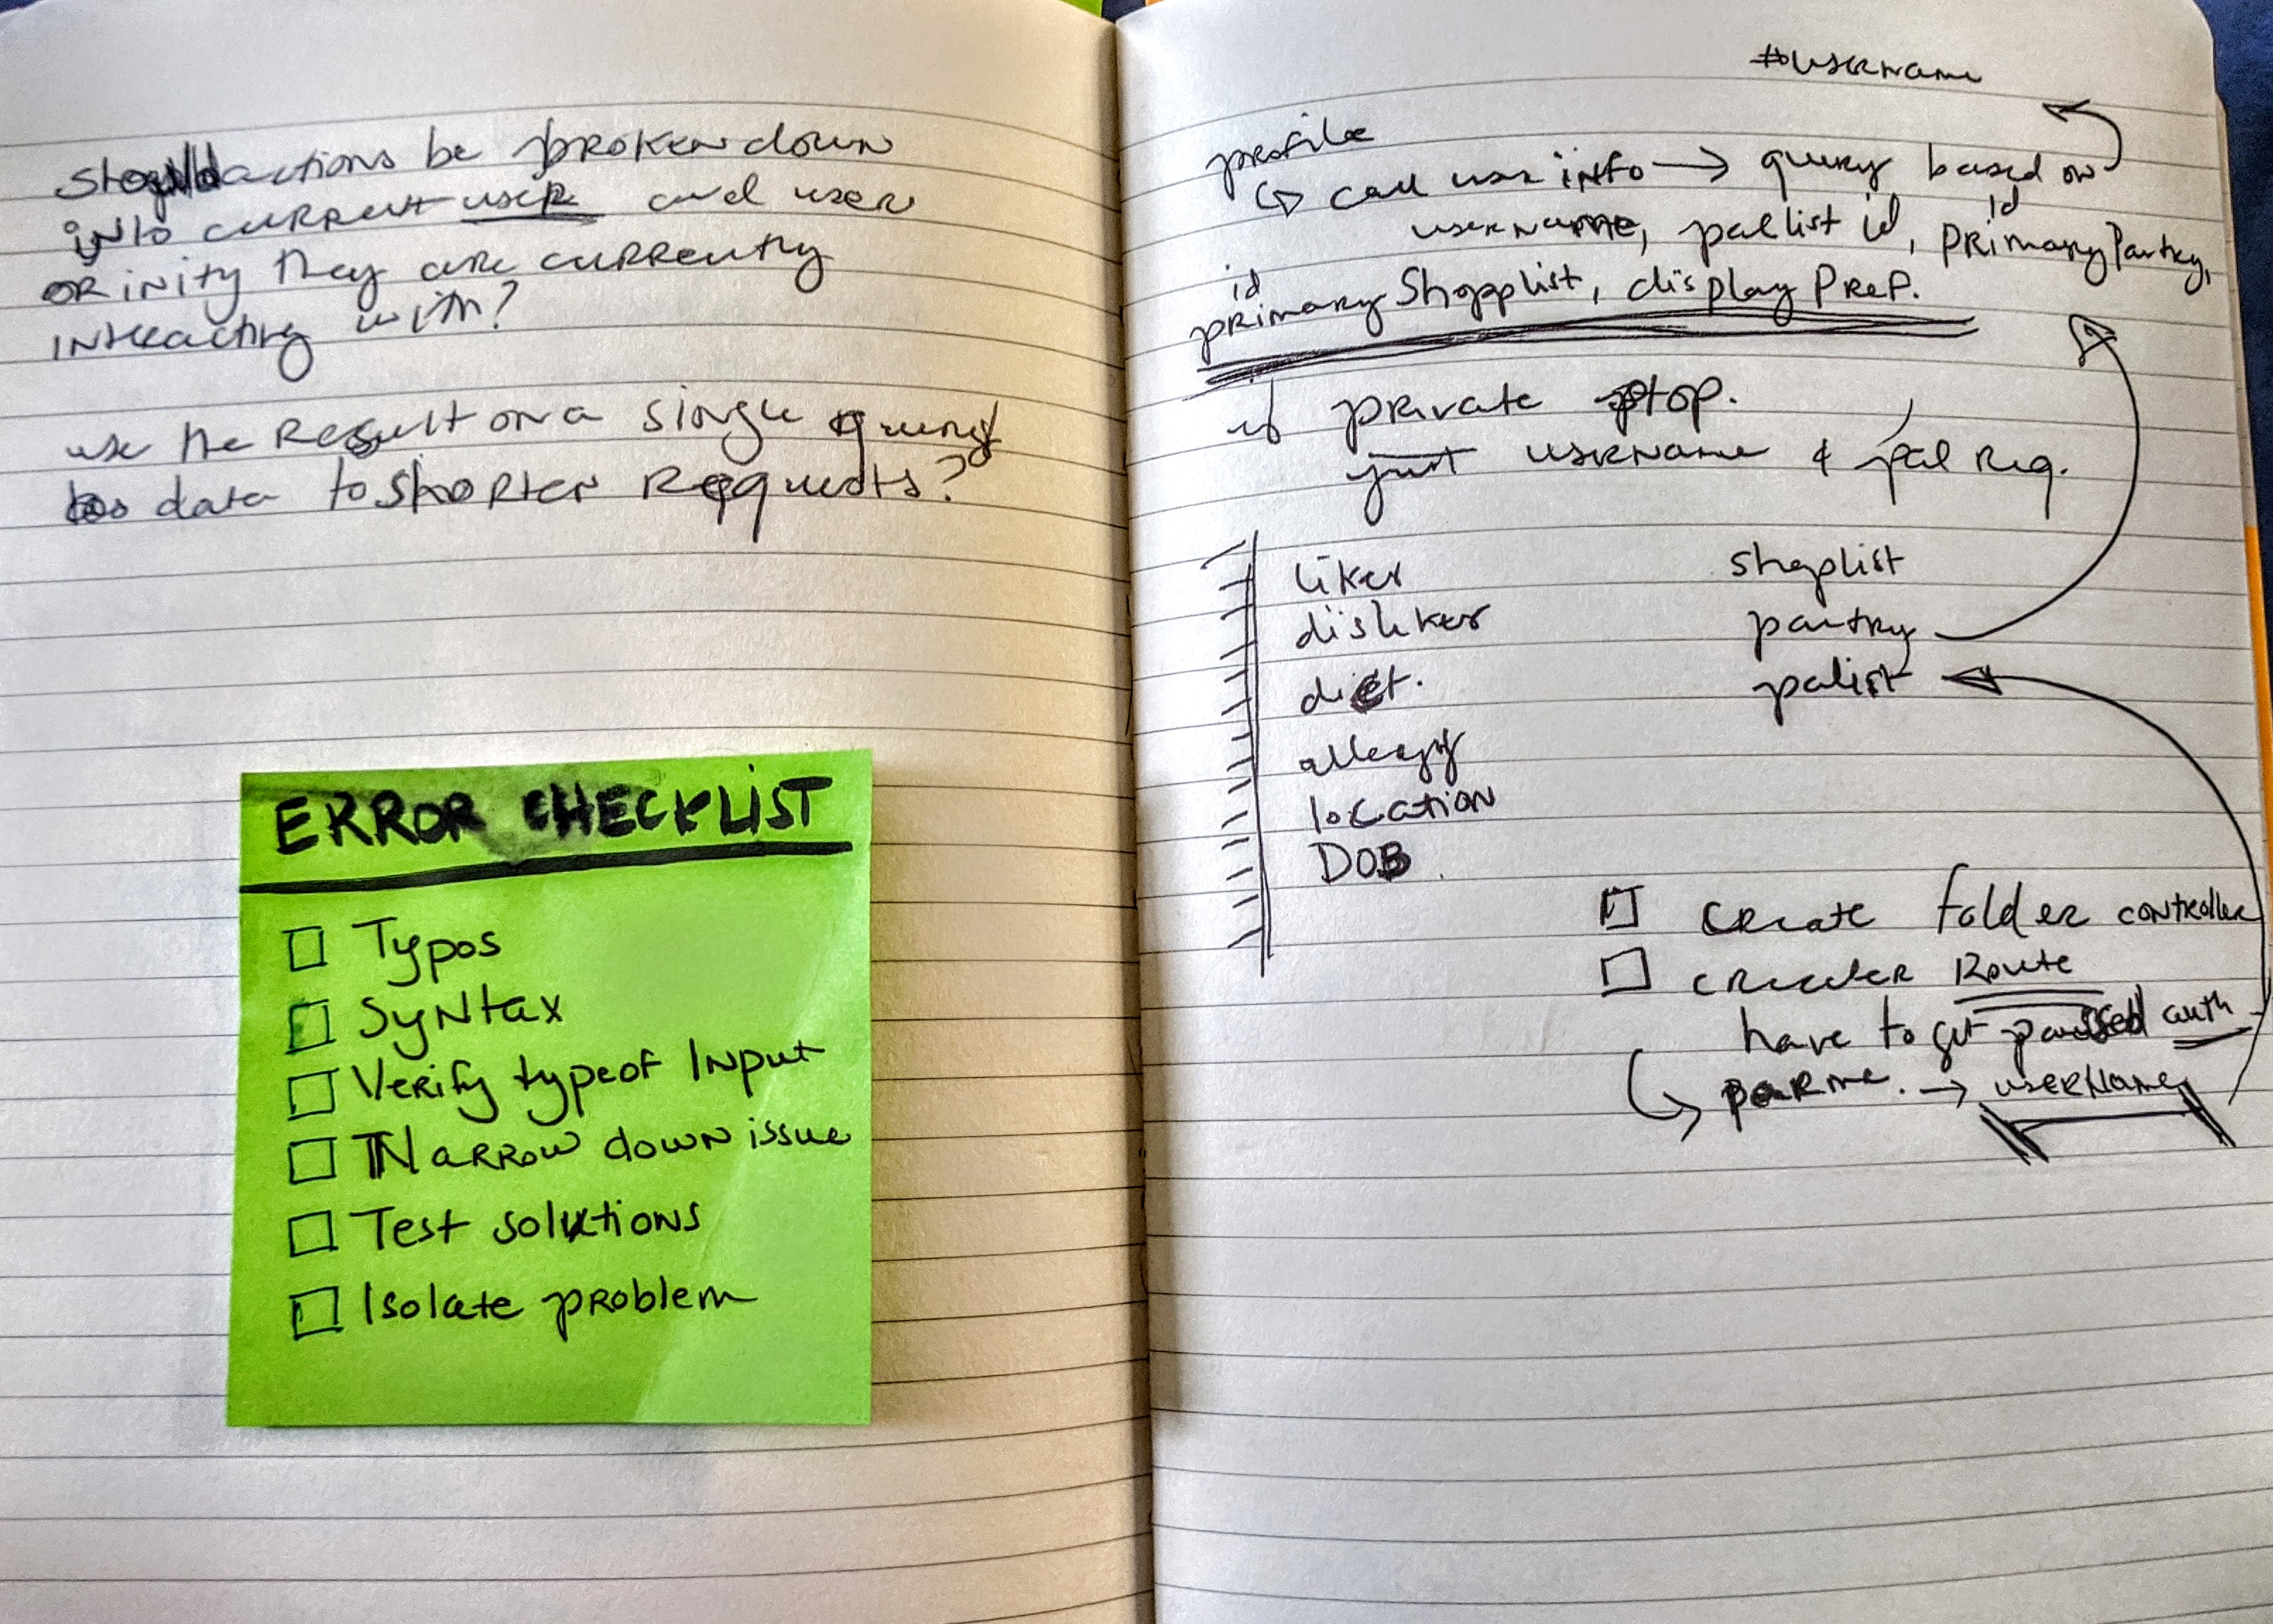 Should actions be broken down
into current user and user
or inity they are currently
interacting with?
use the Result on a single query
data to shorter Requests?
ERROR CHECKLIST
Typos
Syntax
Verify typeof Input
Narrow down issue
Test solutions
Isolate problem
#username
profile
call use info → query based on
username, pallist id, primary Pantry,
id
id
primary Shopplist, display Pref.
if private stop.
just username & pal req.
likes
dislikes
diet.
allergy
location
DOB.
shoplist
pantry
palist
create folder controller
create Route
have to get passed auth
→ username